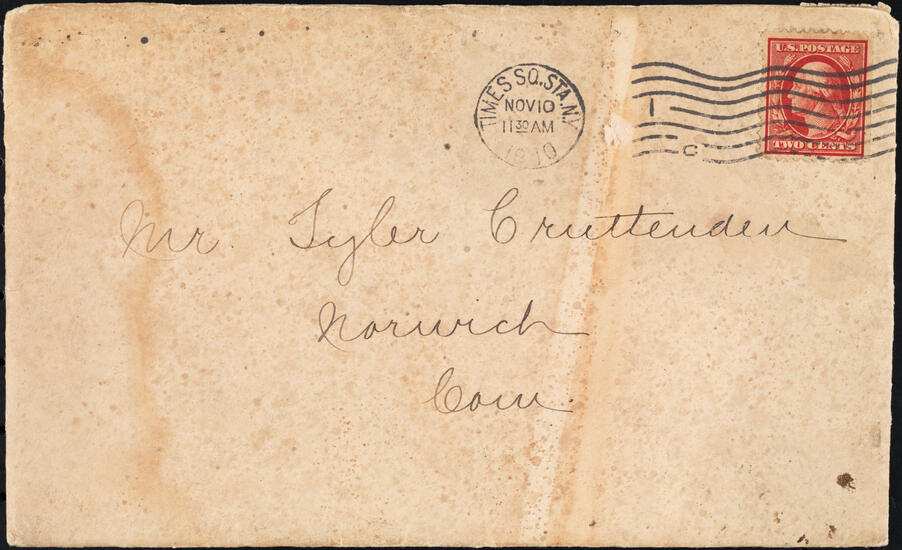 TIMES SQ. STA. N.Y.
NOV 10
11 30 AM
1910
1
C
U.S. POSTAGE
TWO CENTS
Mr. Tyler Cruttenden
Norwich
Conn.